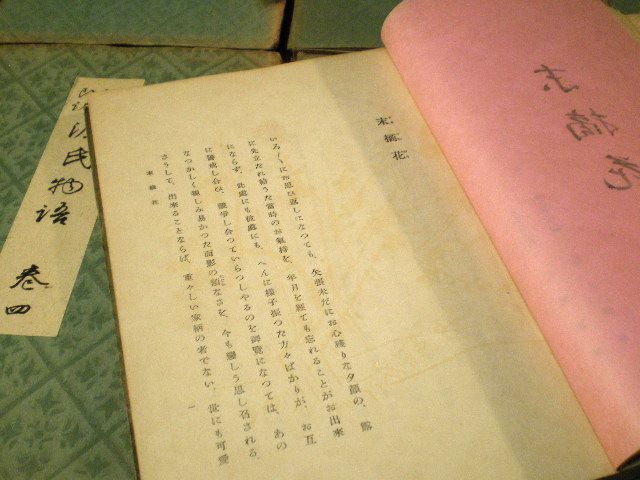 末摘花
いろ〳〵にお思ひ返しになつても、矢張未だにお心残りな夕顔の、露
に先立たれ給うた当時のお氣持を、年月を經ても忘れることがお出来
にならず、此處にも彼處にも、へんに様子振つた方々ばかりが、お互
に警戒し合ひ、競爭し合つていらつしやるのを御覽になつては、あの
なつかしく親しみ易かつた面影の類なさを、今も戀しう思し召される。
さうして、出来ることならば、重々しい家柄の者でない、世にも可愛
末摘花
一
源氏物語 巻四
末摘花